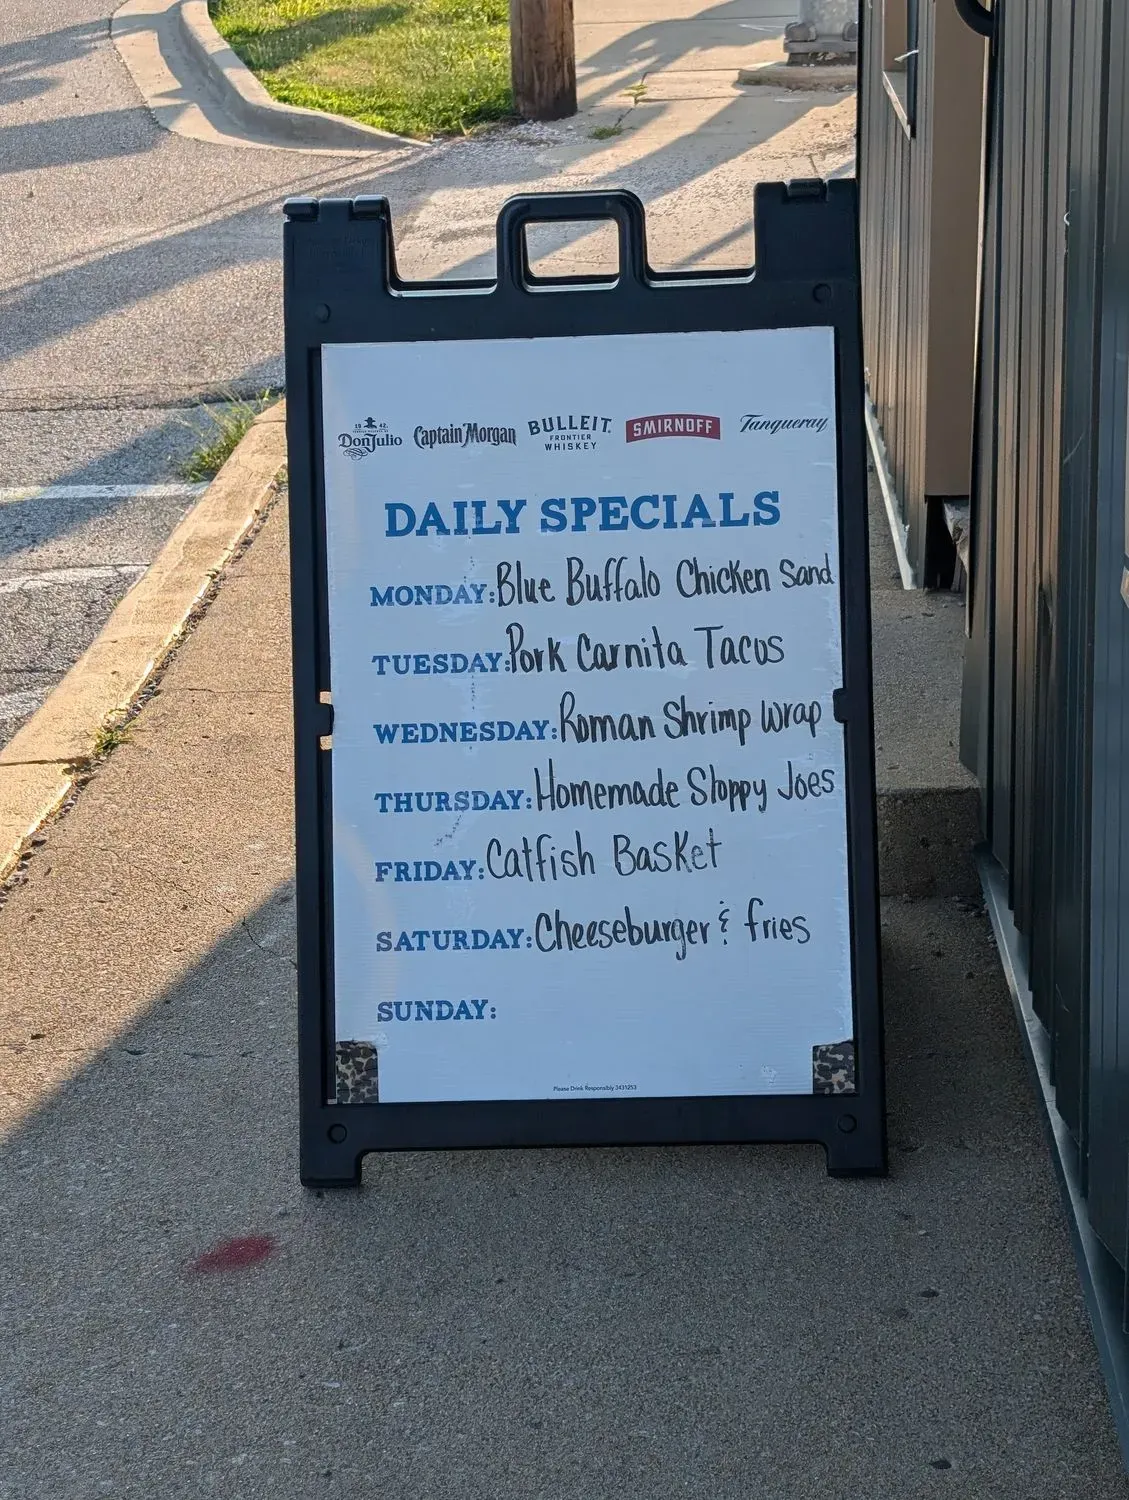 1942.
Don Julio
Captain Morgan
BULLEIT.
FRONTIER
WHISKEY
SMIRNOFF
Tanqueray
DAILY SPECIALS
MONDAY: Blue Buffalo Chicken Sand
TUESDAY: Pork Carnita Tacos
WEDNESDAY: Roman Shrimp Wrap
THURSDAY: Homemade Sloppy Joes
FRIDAY: Catfish Basket
SATURDAY: Cheeseburger & fries
SUNDAY:
Please Drink Responsibly 3431253